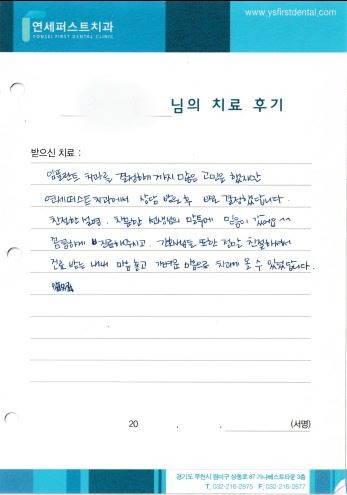 연세퍼스트치과
YONSEI FIRST DENTAL CLINIC
www.ysfirstdental.com
님의 치료 후기
받으신 치료 :
임플란트 치과를 결정하게 까지 많은 고민을 했지만
연세퍼스트치과에서 상담 받은 후 바로 결정했답니다.
친절한 설명, 차분한 선생님의 말투에 믿음이 갔어요 ^^
꼼꼼하게 진료해주시고, 간호사님들 또한 정말 친절하셔서
진료 받는 내내 마음 놓고 가벼운 마음으로 치과에 올 수 있었답니다.
20 . . (서명)
경기도 부천시 원미구 상동로 87 가나베스트타운 3층
T. 032-216-2875 F. 032-216-2877